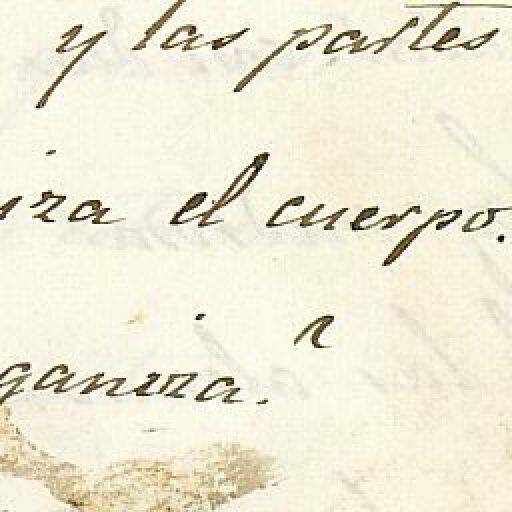 y las partes
iza el cuerpo.
ganiza.